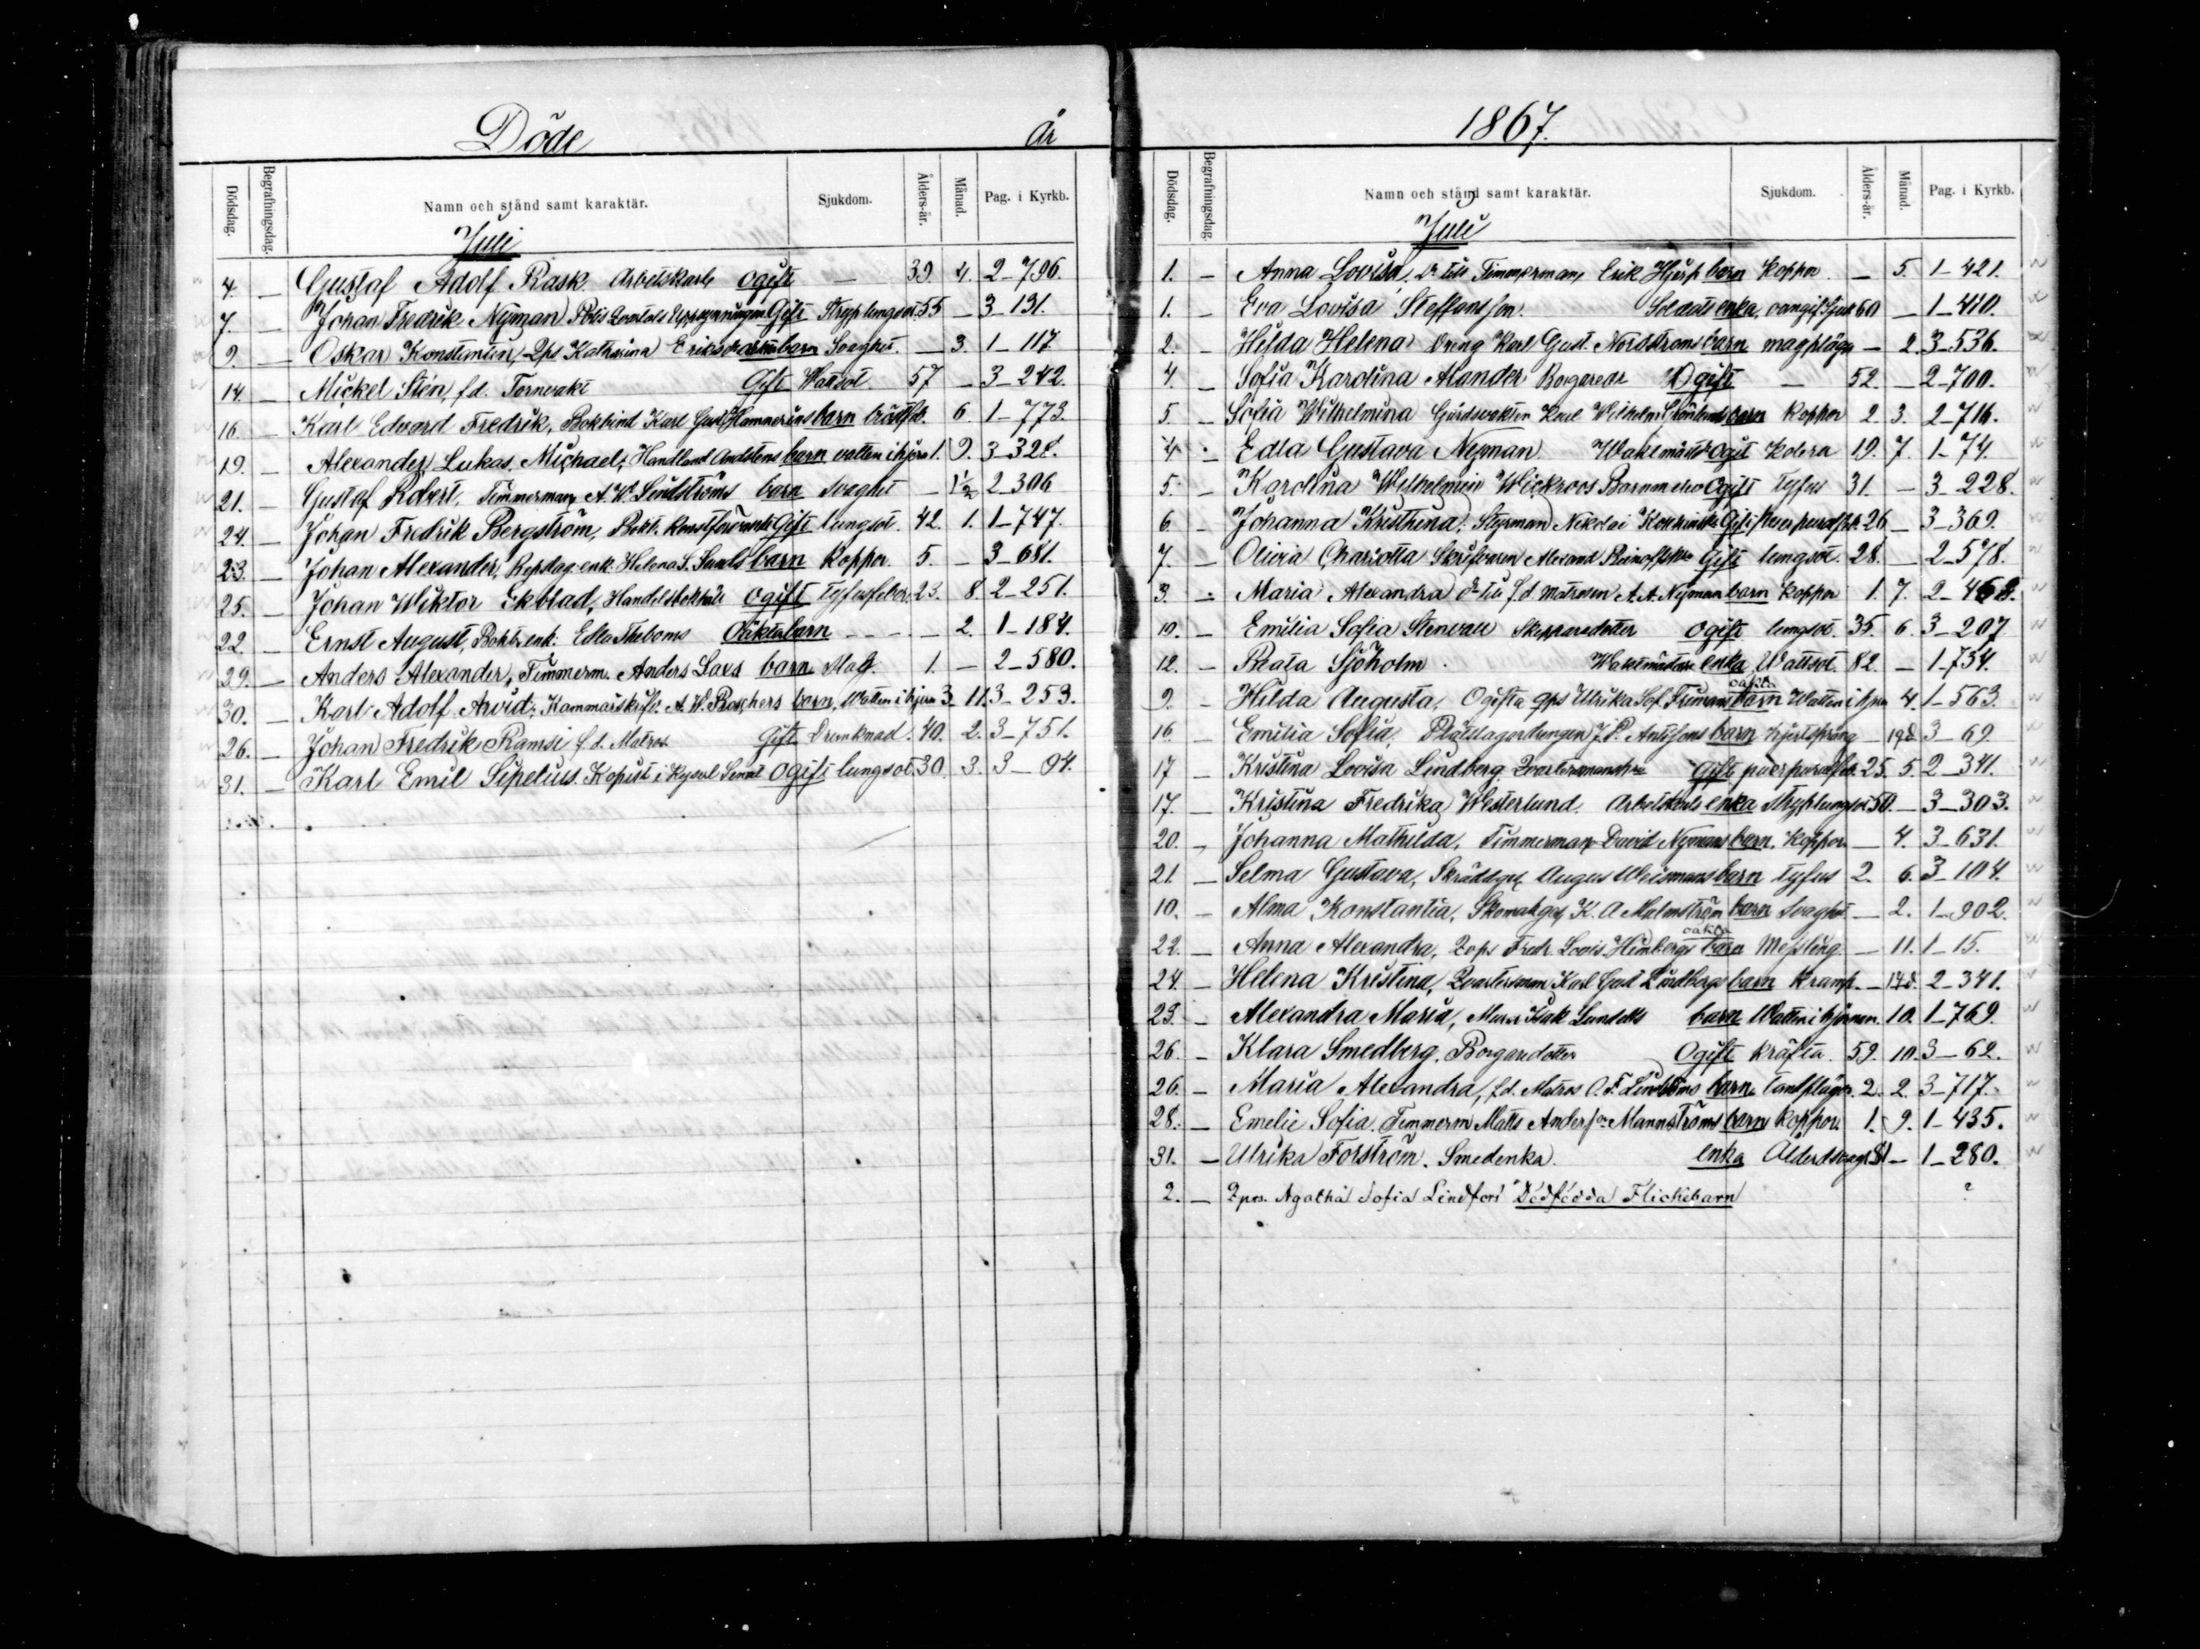 Döde år
Dödsdag. Begrafningsdag. Namn och stånd samt karaktär. Sjukdom. Ålders-år. Månad. Pag. i Kyrkb.
Juli
4. — Gustaf Adolf Rask. Arbetskarl, ogift — 39. 4. 2-796.
7. — Johan Fredrik Nyman Gift lungsot 55 — 3-131.
9. — Oskar Konstantin, Qps Katharina barn Svaghet. — 3. 1-117.
14. — Mickel Stén, f.d. Tornvakt Gift Wattsot. 57 — 3-242.
16. — Karl Edvard Fredrik, Bokbind Karl Gust. barn 6. 1-773.
19. — Alexander Lukas Michael, Handland barn vatten i hjern 1. 9. 3-328.
21. — Gustaf Robert, Timmerman A. W. Lindströms barn Svaghet — 1½ 2-306
24. — Johan Fredrik Bergström, Gift lungsot. 42. 1. 1-747.
23. — Johan Alexander, Repslag. enk. Helena S. barn Koppor. 5. — 3-681.
25. — Johan Wiktor Ekblad, ogift tyfusfeber. 23. 8. 2-251.
22. — Ernst August, enk. Edla Theboms Oäkta barn — — — 2. 1-184.
29. — Anders Alexander, Timmerm. Anders barn Mag. 1. — 2-580.
30. — Karl Adolf Arvid, Kammarskrifv. A. W. Roschers barn, Watten i hjern 3. 11. 3-253.
26. — Johan Fredrik Ramsi f.d. Matros Gift Drunknad. 40. 2. 3-751.
31. — Karl Emil Sipelius. Kopist i Kejserl. Senat ogift lungsot. 30. 3. 3-94.
1867.
Dödsdag. Begrafningsdag. Namn och stånd samt karaktär. Sjukdom. Ålders-år. Månad. Pag. i Kyrkb.
Juli
1. — Anna Lovisa, Dr till Timmerman Erik Hjerp barn Koppor. — 5. 1-421.
1. — Eva Lovisa Steffansson. Soldats enka, oangif. Sjuk 60 — 1-410.
2. — Hilda Helena Dreng Karl Gust. Nordströms barn magplåga — 2. 3-536.
4. — Sofia Karolina Alander Ogift — 52. — 2-700.
5. — Sofia Wilhelmina Gårdsvakten Karl Wilhelm barn Koppor 2. 3. 2-716.
4 — Edla Gustava Nyman Ogift Kolera 19. 7. 1-74.
5. — Karolina Wilhelmin Wickroos Ogift tyfus 31. — 3-228.
6. — Johanna Kristhina, Styrman Nikolai Gift 26 — 3-369.
7. — Olivia Charlotta Gift lungsot. 28. — 2-578.
3. — Maria Alexandra Dr till f.d. matrosen A. A. Nyman barn Koppor 1. 7. 2-468.
10. — Emilia Sofia Stenvall Skepparedotter ogift lungsot. 35. 6. 3-207
12. — Beata Sjöholm. enka Wattsot. 82. — 1-754.
9. — Hilda Augusta, Ogifta Qps Ulrika Sof. oäkta barn Watten i hjern 4. 1-563.
16. — Emilia Sofia, barn — 19d. 3-69
17 — Kristina Lovisa Lindberg. Gift puerperalfeb. 25. 5. 2-341.
17. — Kristina Fredrika Westerlund. Arbetskarls enka 50. — 3-303.
20. — Johanna Mathilda, Timmerman David Nymans barn. Koppor — 4. 3-631.
21. — Selma Gustava, August barn Tyfus 2. 6. 3-104.
10. — Alma Konstantia, K. A Malmström barn Svaghet. — 2. 1-902.
22. — Anna Alexandra, Qps Fredr. Lovis. Himbergs oäkta barn Messling. — 11. 1-15.
24. — Helena Kristina, Karl Gust Lindbergs barn Kramp. — 14d. 2-341.
23. — Alexandra Maria, Isak Lundells barn Watten i hjernan. 10. 1-769.
26. — Klara Smedberg, Borgaredotter Ogift Kräfta. 59. 10. 3-62.
26. — Maria Alexandra, f.d. Matros barn Tandplåga. 2. 2. 3-717.
28. — Emelie Sofia, Timmerm Matts Anderson Mannströms barn Koppor. 1. 9. 1-435.
31. — Ulrika Forström. Smedenka. enka 81 — 1-280.
2. — Qpns. Agatha Sofia Lindfors Dödfödda Flickebarn ?